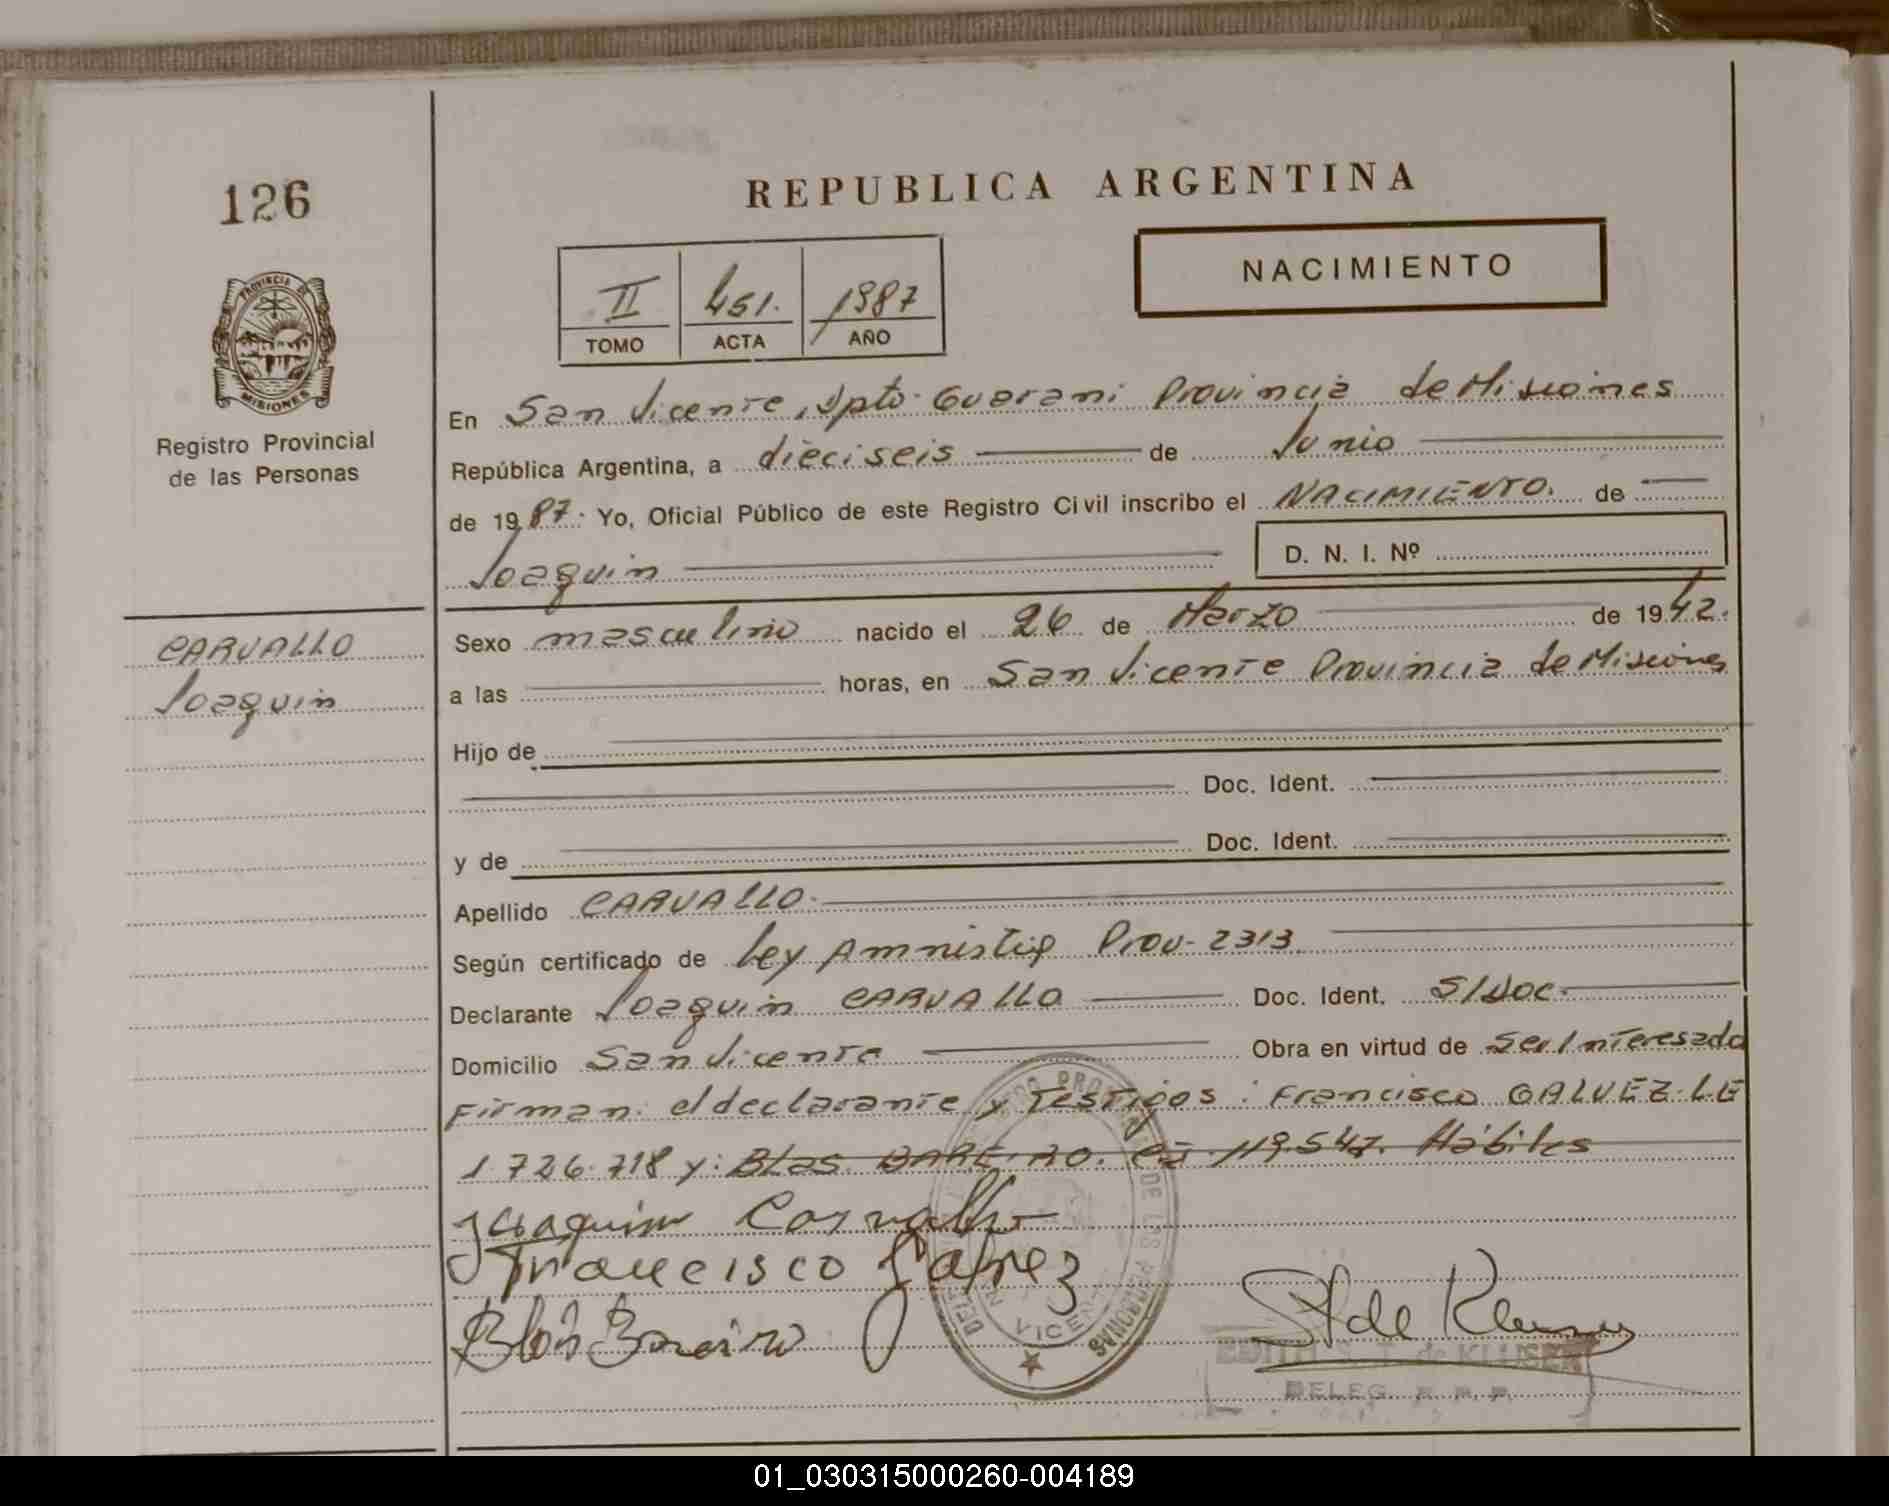 126
REPUBLICA ARGENTINA
NACIMIENTO
II 451. 1987
TOMO ACTA AÑO
PROVINCIA DE MISIONES
Registro Provincial
de las Personas
En San Vicente, Dpto. Guarani Provincia de Misiones
República Argentina, a dieciseis de Junio
de 1987. Yo, Oficial Público de este Registro Civil inscribo el NACIMIENTO. de
Joaquin D. N. I. Nº
CARVALLO
Joaquin
Sexo masculino nacido el 26 de Marzo de 1942.
a las horas, en San Vicente Provincia de Misiones
Hijo de
Doc. Ident.
y de Doc. Ident.
Apellido CARVALLO.
Según certificado de Ley Amnistia Prov. 2313
Declarante Joaquin CARVALLO Doc. Ident. S/Doc.
Domicilio San Vicente Obra en virtud de Ser Interesado
Firman: el declarante y Testigos: Francisco GALVEZ. L.E
1.726.718 y: Blas BAREIRO. 119.547. Hábiles
Joaquim Carvallo
Francisco Galvez
Blas Bareiro
DE LAS PERSONAS
VICENTE
EDITH S. T. de KLUSER
DELEG.
01_030315000260-004189